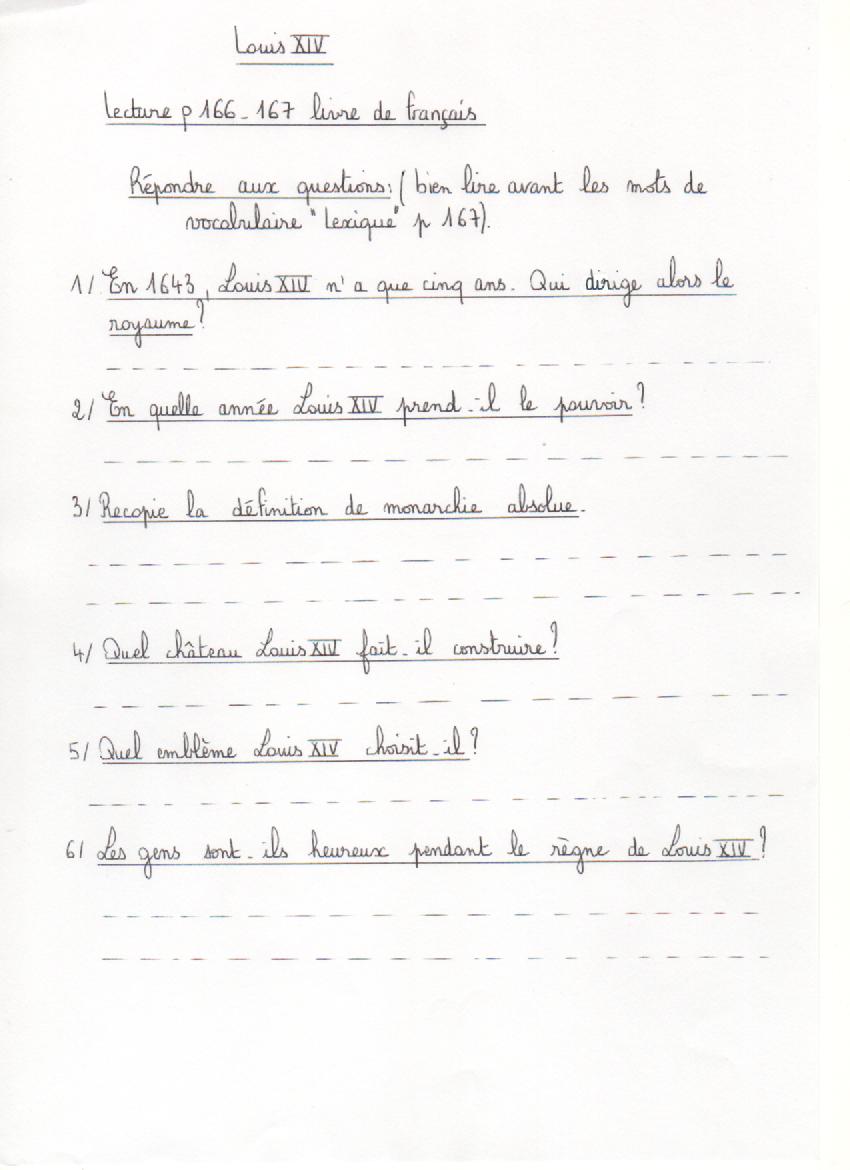 Louis XIV
Lecture p 166-167 livre de français
Répondre aux questions: (bien lire avant les mots de
vocabulaire "Lexique" p 167).
1/ En 1643, Louis XIV n'a que cinq ans. Qui dirige alors le
royaume?
2/ En quelle année Louis XIV prend-il le pouvoir?
3/ Recopie la définition de monarchie absolue.
4/ Quel château Louis XIV fait-il construire?
5/ Quel emblème Louis XIV choisit-il?
6/ Les gens sont-ils heureux pendant le règne de Louis XIV?